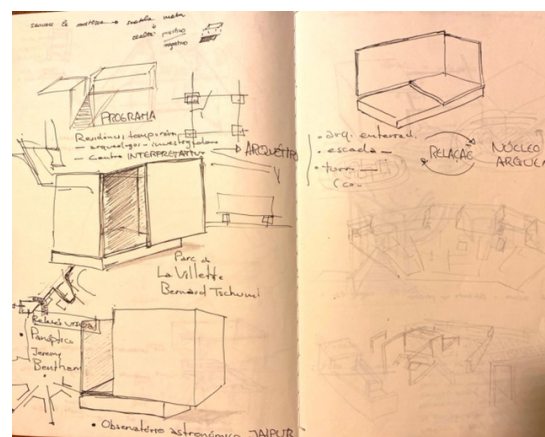 positivo
negativo
PROGRAMA
Residências temporári
— arqueólogos - investigadores
— Centro INTERPRETATIVO
ARQUÉTIPO
Parc de
La Villette
Bernard Tschumi
Relação visual
• Panóptico
Jeremy
Bentham
• Observatório astronómico JAIPUR
• arq. enterrad.
• escada —
• torre —
RELAÇÃO
NÚCLEO
ARQUEO